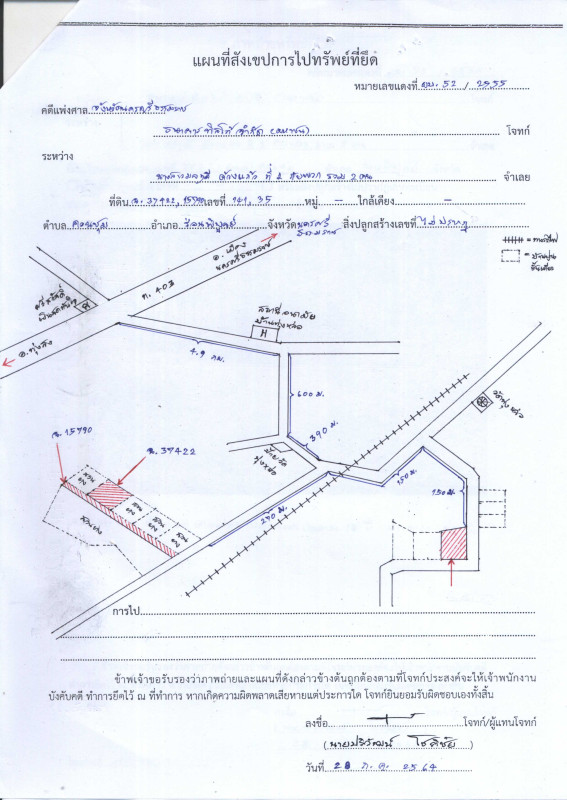 แผนที่สังเขปการไปทรัพย์ที่ยึด
หมายเลขแดงที่ ผบ. 52 / 2555
คดีแพ่งศาล จังหวัดนครศรีธรรมราช
ธนาคารทิสโก้ จำกัด (มหาชน) โจทก์
ระหว่าง
ที่ 1 กับพวก รวม 2 คน จำเลย
ที่ดิน ฉ. 37422, 15790 เลขที่ 141, 35 หมู่ - ใกล้เคียง -
ตำบล ควนชุม อำเภอ ร่อนพิบูลย์ จังหวัด นครศรีธรรมราช สิ่งปลูกสร้างเลขที่ ไม่ปรากฏ
= ทางรถไฟ
= บ้านปูนชั้นเดียว
อ. เมือง
นครศรีธรรมราช
ท. 403
อ. ทุ่งสง
สถานีอนามัย
บ้านทุ่งหล่อ
H
4.9 กม.
600 ม.
390 ม.
วัดทุ่งหล่อ
ฉ. 15790
ฉ. 37422
ป้ายวัด
ทุ่งหล่อ
150 ม.
150 ม.
270 ม.
สวนยาง
สวนยาง
สวนยาง
สวนยาง
สวนยาง
การไป
ข้าพเจ้าขอรับรองว่าภาพถ่ายและแผนที่ดังกล่าวข้างต้นถูกต้องตามที่โจทก์ประสงค์จะให้เจ้าพนักงาน
บังคับคดี ทำการยึดไว้ ณ ที่ทำการ หากเกิดความผิดพลาดเสียหายแต่ประการใด โจทก์ยินยอมรับผิดชอบเองทั้งสิ้น
ลงชื่อ โจทก์/ผู้แทนโจทก์
( นายปริวัฒน์ โชติชัย )
วันที่ 28 ก.ค. 2564